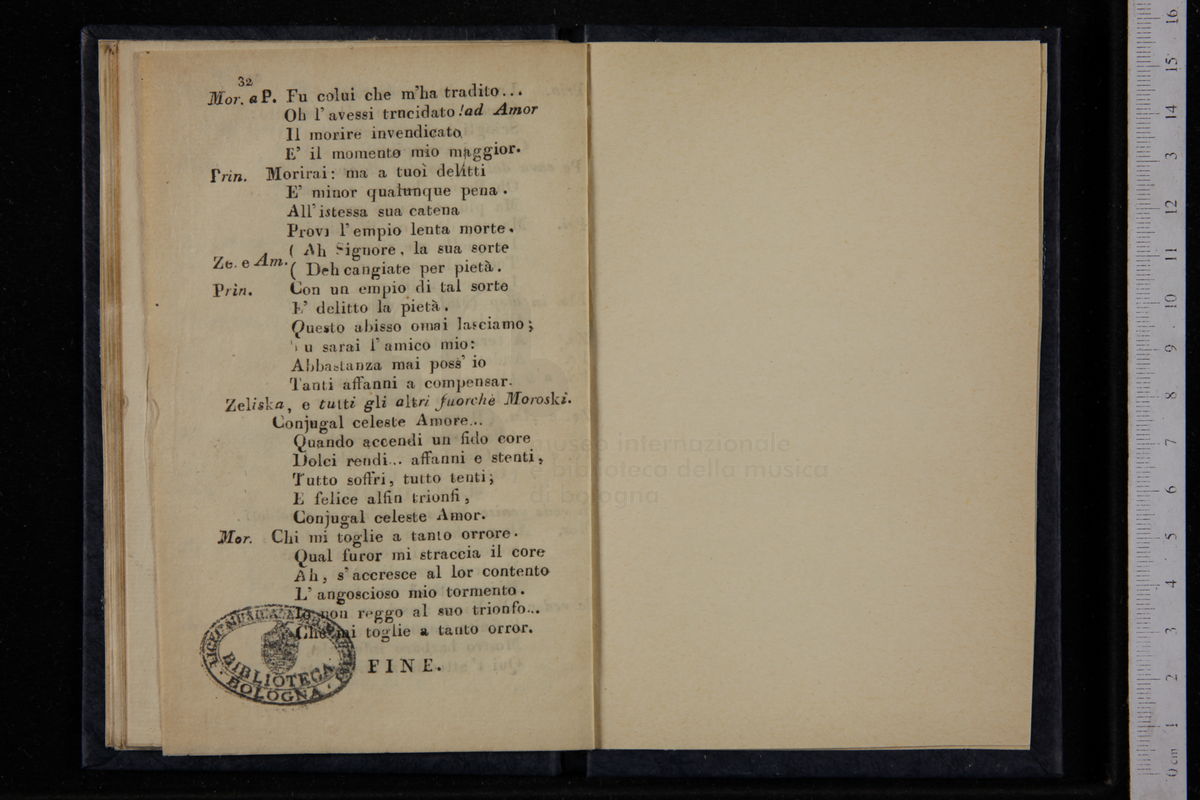 32
Mor. a P. Fu colui che m'ha tradito...
Oh l'avessi trncidato! ad Amor
Il morire invendicato
E' il momento mio maggior.
Prin. Morirai: ma a tuoi delitti
E' minor qualunque pena.
All'istessa sua catena
Provi l'empio lenta morte.
( Ah Signore, la sua sorte
Ze. e Am. ( Deh cangiate per pietà.
Prin. Con un empio di tal sorte
E' delitto la pietà.
Questo abisso omai lasciamo;
Tu sarai l'amico mio:
Abbastanza mai poss' io
Tanti affanni a compensar.
Zeliska, e tutti gli altri fuorchè Moroski.
Conjugal celeste Amore...
Quando accendi un fido core
Dolci rendi... affanni e stenti,
Tutto soffri, tutto tenti;
E felice alfin trionfi,
Conjugal celeste Amor.
Mor. Chi mi toglie a tanto orrore.
Qual furor mi straccia il core
Ah, s'accresce al lor contento
L'angoscioso mio tormento.
Io non reggo al suo trionfo...
Chi mi toglie a tanto orror.
FINE.
BIBLIOTECA
BOLOGNA
museo internazionale
e biblioteca della musica
di bologna
0 cm 1 2 3 4 5 6 7 8 9 10 11 12 3 14 15 16